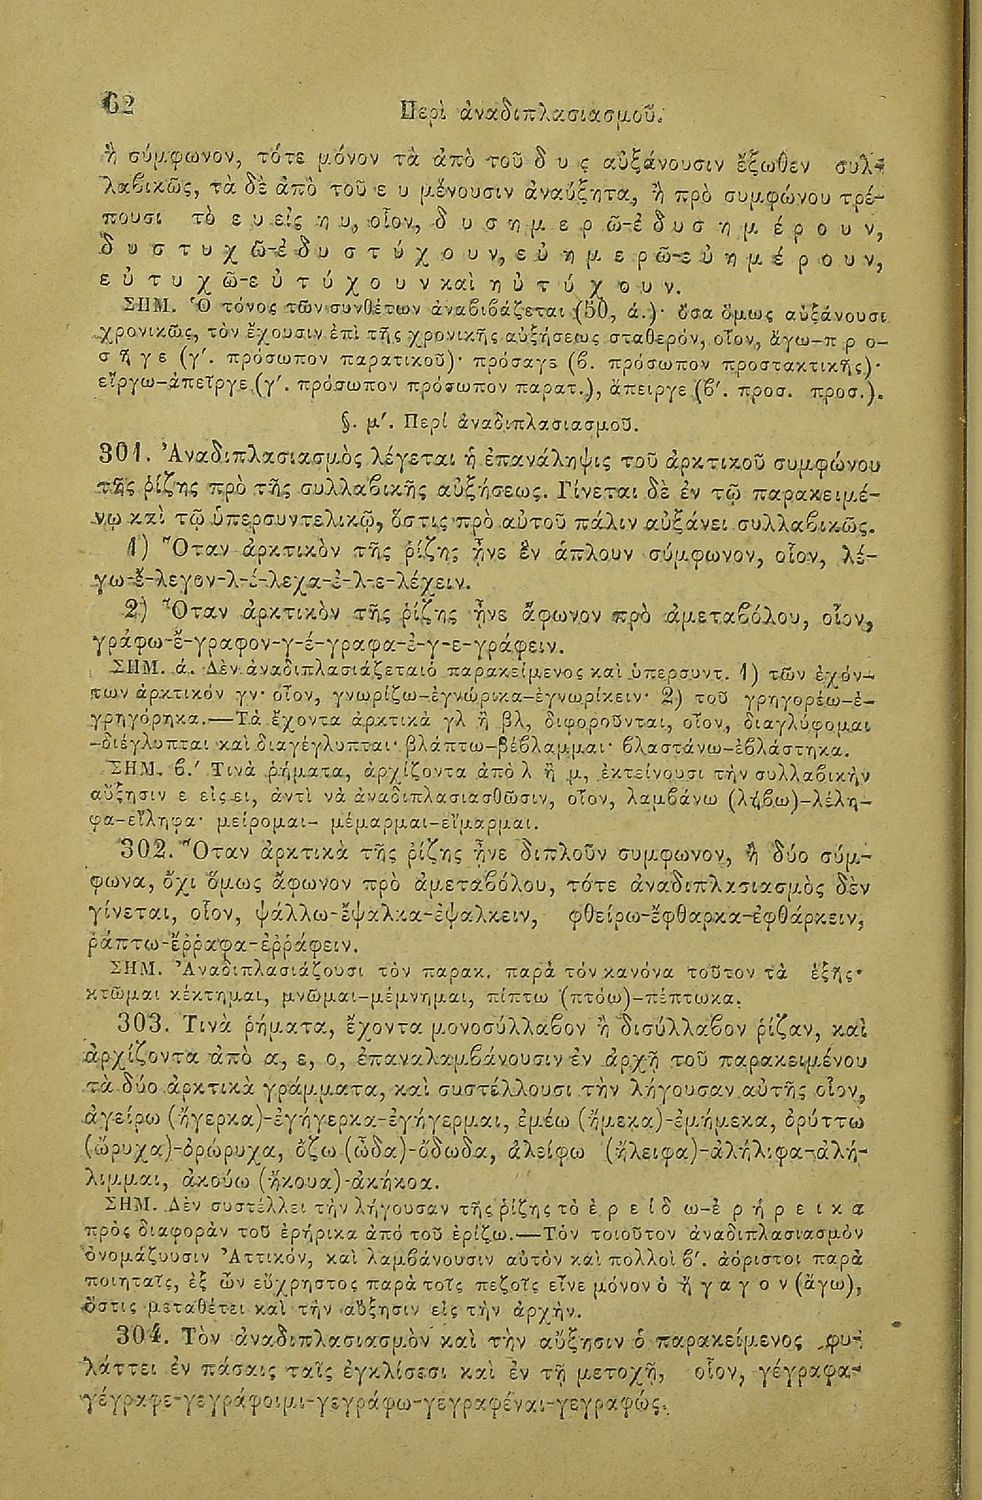 62 Περὶ ἀναδιπλασιασμοῦ.
ἢ σύμφωνον, τότε μόνον τὰ ἀπὸ τοῦ δ υ ς αὐξάνουσιν ἔξωθεν συλ-
λαβικῶς, τὰ δὲ ἀπὸ τοῦ ε υ μένουσιν ἀναύξητα, ἢ πρὸ συμφώνου τρέ-
πουσι τὸ ε υ εἰς η υ, οἷον, δ υ σ η μ ε ρ ῶ-ἐ δ υ σ η μ έ ρ ο υ ν,
δ υ σ τ υ χ ῶ-ἐ δ υ σ τ ύ χ ο υ ν, ε ὐ η μ ε ρ ῶ-ε ὐ η μ έ ρ ο υ ν,
ε ὐ τ υ χ ῶ-ε ὐ τ ύ χ ο υ ν καὶ η ὐ τ ύ χ ο υ ν.
ΣΗΜ. Ὁ τόνος τῶν συνθέτων ἀναβιβάζεται (50, ά.)· ὅσα ὅμως αὐξάνουσι
χρονικῶς, τὸν ἔχουσιν ἐπὶ τῆς χρονικῆς αὐξήσεως σταθερόν, οἷον, ἄγω-π ρ ο-
σ ῆ γ ε (γ΄. πρόσωπον παρατικοῦ)· πρόσαγε (β. πρόσωπον προστακτικῆς)·
εἴργω-ἀπεῖργε (γ΄. πρόσωπον πρόσωπον παρατ.), ἄπειργε (β΄. προσ. προσ.).
§. μ΄. Περί ἀναδιπλασιασμοῦ.
301. Ἀναδιπλασιασμὸς λέγεται ἡ ἐπανάληψις τοῦ ἀρκτικοῦ συμφώνου
τῆς ῥίζης πρὸ τῆς συλλαβικῆς αὐξήσεως. Γίνεται δὲ ἐν τῷ παρακειμέ-
νῳ καὶ τῷ ὑπερσυντελικῷ, ὅστις πρὸ αὐτοῦ πάλιν αὐξάνει συλλαβικῶς.
1) Ὅταν ἀρκτικὸν τῆς ῥίζης ἦνε ἓν ἁπλουν σύμφωνον, οἷον, λέ-
γω-ἔ-λεγον-λ-έ-λεχα-ἐ-λ-ε-λέχειν.
2) Ὅταν ἀρκτικὸν τῆς ῥίζης ἦνε ἄφωνον πρὸ ἀμεταβόλου, οἷον,
γράφω-ἔ-γραφον-γ-έ-γραφα-ἐ-γ-ε-γράφειν.
ΣΗΜ. ά. Δὲν ἀναδιπλασιάζεται ὁ παρακείμενος καὶ ὑπερσυντ. 1) τῶν ἐχόν-
των ἀρκτικόν γν· οἷον, γνωρίζω-ἐγνώρικα-ἐγνωρίκειν· 2) τοῦ γρηγορέω-ἐ-
γρηγόρηκα.—Τὰ ἔχοντα ἀρκτικὰ γλ ἢ βλ, διφοροῦνται, οἷον, διαγλύφομαι
-διέγλυπται καὶ διαγέγλυπται· βλάπτω-βέβλαμμαι· βλαστάνω-ἐβλάστηκα.
ΣΗΜ. β.΄ Τινὰ ῥήματα, ἀρχίζοντα ἀπὸ λ ἢ μ, ἐκτείνουσι τὴν συλλαβικὴν
αὔξησιν ε εἰς ει, ἀντὶ νὰ ἀναδιπλασιασθῶσιν, οἷον, λαμβάνω (λήβω)-λέλη-
φα-εἴληφα· μείρομαι- μέμαρμαι-εἵμαρμαι.
302. Ὅταν ἀρκτικὰ τῆς ῥίζης ἦνε διπλοῦν συμφωνον, ἢ δύο σύμ-
φωνα, ὄχι ὅμως ἄφωνον πρὸ ἀμεταβόλου, τότε ἀναδιπλασιασμὸς δὲν
γίνεται, οἷον, ψάλλω-ἔψαλκα-ἐψαλκειν, φθείρω-ἔφθαρκα-ἐφθάρκειν,
ῥάπτω-ἔῤῥαφα-ἐῤῥάφειν.
ΣΗΜ. Ἀναδιπλασιάζουσι τὸν παρακ. παρὰ τὸν κανόνα τοῦτον τὰ ἑξῆς·
κτῶμαι κέκτημαι, μνῶμαι-μέμνημαι, πίπτω (πτόω)-πέπτωκα.
303. Τινὰ ῥήματα, ἔχοντα μονοσύλλαβον ἢ δισύλλαβον ῥίζαν, καὶ
ἀρχίζοντα ἀπὸ α, ε, ο, ἐπαναλαμβάνουσιν ἐν ἀρχῇ τοῦ παρακειμένου
τὰ δύο ἀρκτικὰ γράμματα, καὶ συστέλλουσι τὴν λήγουσαν αὐτῆς οἷον,
ἀγείρω (ἤγερκα)-ἐγήγερκα-ἐγήγερμαι, ἐμέω (ἤμεκα)-ἐμήμεκα, ὀρύττω
(ὤρυχα)-ὀρώρυχα, ὄζω (ὦδα)-ὄδωδα, ἀλείφω (ἤλειφα)-ἀλήλιφα-ἀλή-
λιμμαι, ἀκούω (ἤκουα)-ἀκήκοα.
ΣΗΜ. Δὲν συστέλλει τὴν λήγουσαν τῆς ῥίζης τὸ ἐ ρ ε ί δ ω-ἐ ρ ή ρ ε ι κ α
πρὸς διαφορὰν τοῦ ἐρήρικα ἀπό τοῦ ἐρίζω.—Τόν τοιοῦτον ἀναδιπλασιασμὸν
ὀνομάζουσιν Ἀττικόν, καὶ λαμβάνουσιν αὐτὸν καὶ πολλοὶ β΄. ἀόριστοι παρὰ
ποιηταῖς, ἐξ ὧν εὔχρηστος παρὰ τοῖς πεζοῖς εἶνε μόνον ὁ ἤ γ α γ ο ν (ἄγω),
ὅστις μεταθέτει καὶ τὴν αὔξησιν εἰς τὴν ἀρχήν.
304. Τὸν ἀναδιπλασιασμὸν καὶ τὴν αὔξησιν ὁ παρακείμενος φυ-
λάττει ἐν πάσαις ταῖς ἐγκλίσεσι καὶ ἐν τῇ μετοχῇ, οἷον, γέγραφα-
γέγραφε-γεγράφοιμι-γεγράφω-γεγραφέναι-γεγραφώς.